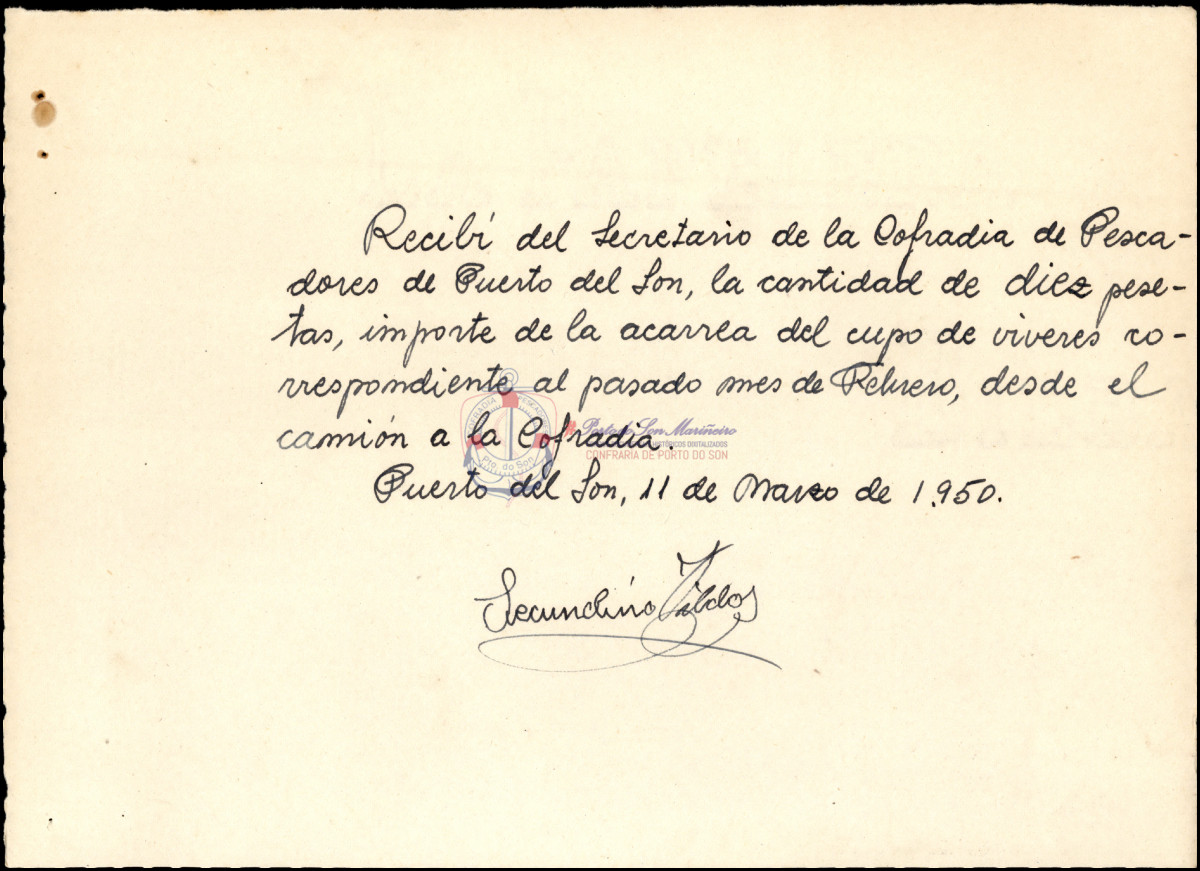 Recibí del Secretario de la Cofradia de Pesca-
dores de Puerto del Son, la cantidad de diez pese-
tas, importe de la acarrea del cupo de viveres co-
rrespondiente al pasado mes de Febrero, desde el
camión a la Cofradia.
Porto do Son Mariñeiro
HISTÓRICOS DIGITALIZADOS
CONFRARÍA DE PORTO DO SON
Pto. do Son
Puerto del Son, 11 de Marzo de 1.950.
Secundino